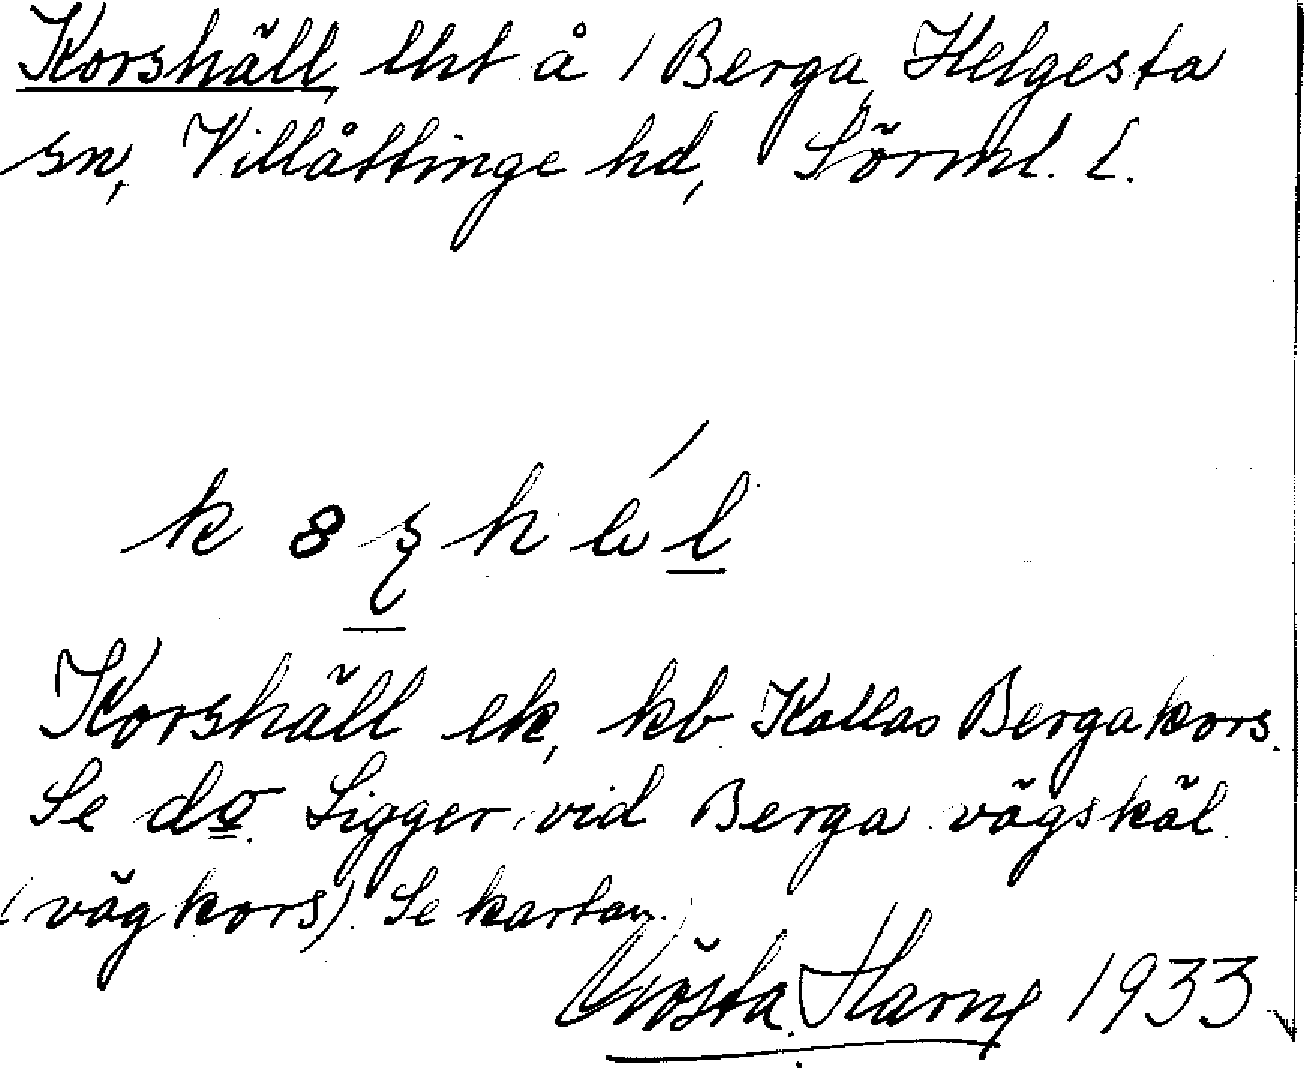 Korshäll, lht å 1 Berga, Helgesta
sn, Villåttinge hd, Sörml. l.
Korshäll ek, kb. Kallas Bergakors.
Se do. Ligger vid Berga vägskäl
(vägkors). Se kartan.
Gösta Harng 1933